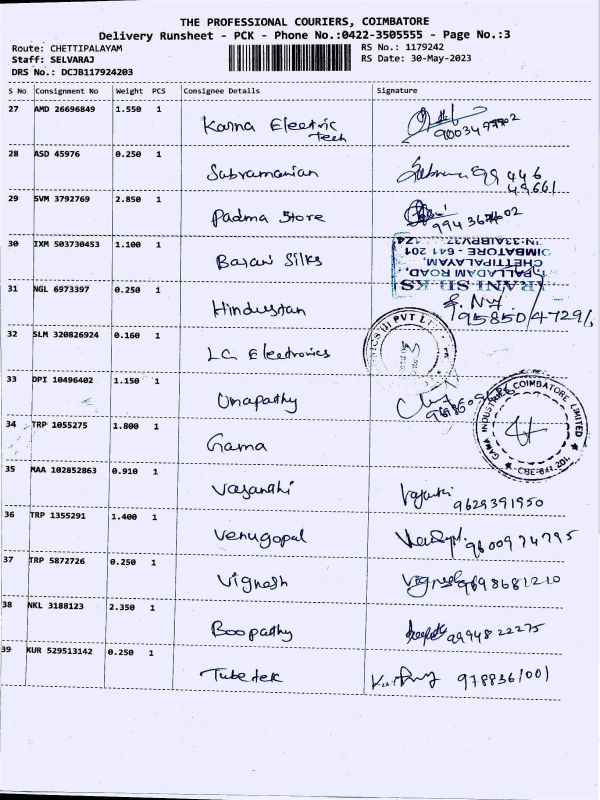 THE PROFESSIONAL COURIERS, COIMBATORE
Delivery Runsheet - PCK - Phone No.:0422-3505555 - Page No.:3
Route: CHETTIPALAYAM RS No.: 1179242
Staff: SELVARAJ RS Date: 30-May-2023
DRS No.: DCJB117924203
S No Consignment No Weight PCS Consignee Details Signature
27 AMD 26696849 1.550 1
Karna Electric
Tech
28 ASD 45976 0.250 1
Subramanian 99 446
49661
29 SVM 3792769 2.850 1
Padma Store
30 IXM 503730453 1.100 1
Barani Silks
ARANI SILKS
PALLADAM ROAD,
CHETTIPALAYAM,
COIMBATORE - 641 201
31 NGL 6973397 0.250 1
Hindustan 95850 47291
32 SLM 320826924 0.160 1
LG Electronics
PVT L
33 DPI 10496402 1.150 1
Umapathy
34 TRP 1055275 1.800 1
Gama
GAMA INDUSTRIES COIMBATORE LIMITED
CBE-641 201
35 MAA 102852863 0.910 1
Vasanthi 9629391950
36 TRP 1355291 1.400 1
Venugopal 9600974795
37 TRP 5872726 0.250 1
Vignesh Vignesh 9698681210
38 NKL 3188123 2.350 1
Boopathy 9994822275
39 KUR 529513142 0.250 1
Tubetek 9788361001